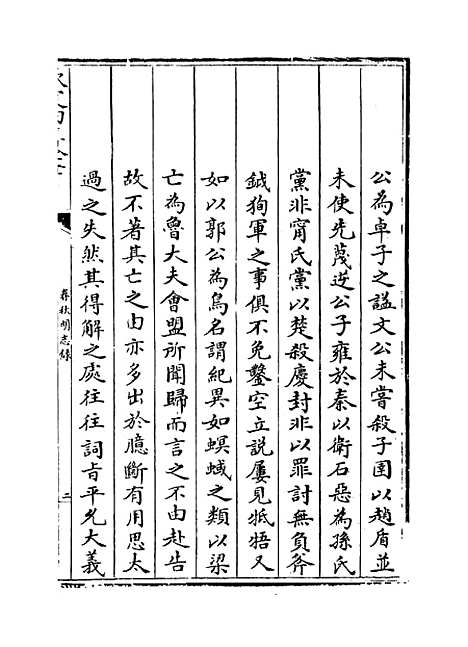 公為卓子之諡文公未嘗殺子圉以趙盾並
未使先蔑逆公子雍於秦以衛石惡為孫氏
黨非甯氏黨以楚殺慶封非以罪討無負斧
鉞狥軍之事俱不免鑿空立説屢見牴牾又
如以郭公為鳥名謂紀異如螟蜮之類以梁
亡為魯大夫會盟所聞歸而言之不由赴告
故不著其亡之由亦多出於臆斷有用思太
過之失然其得解之處往往詞旨平允大義
春秋明志錄
二